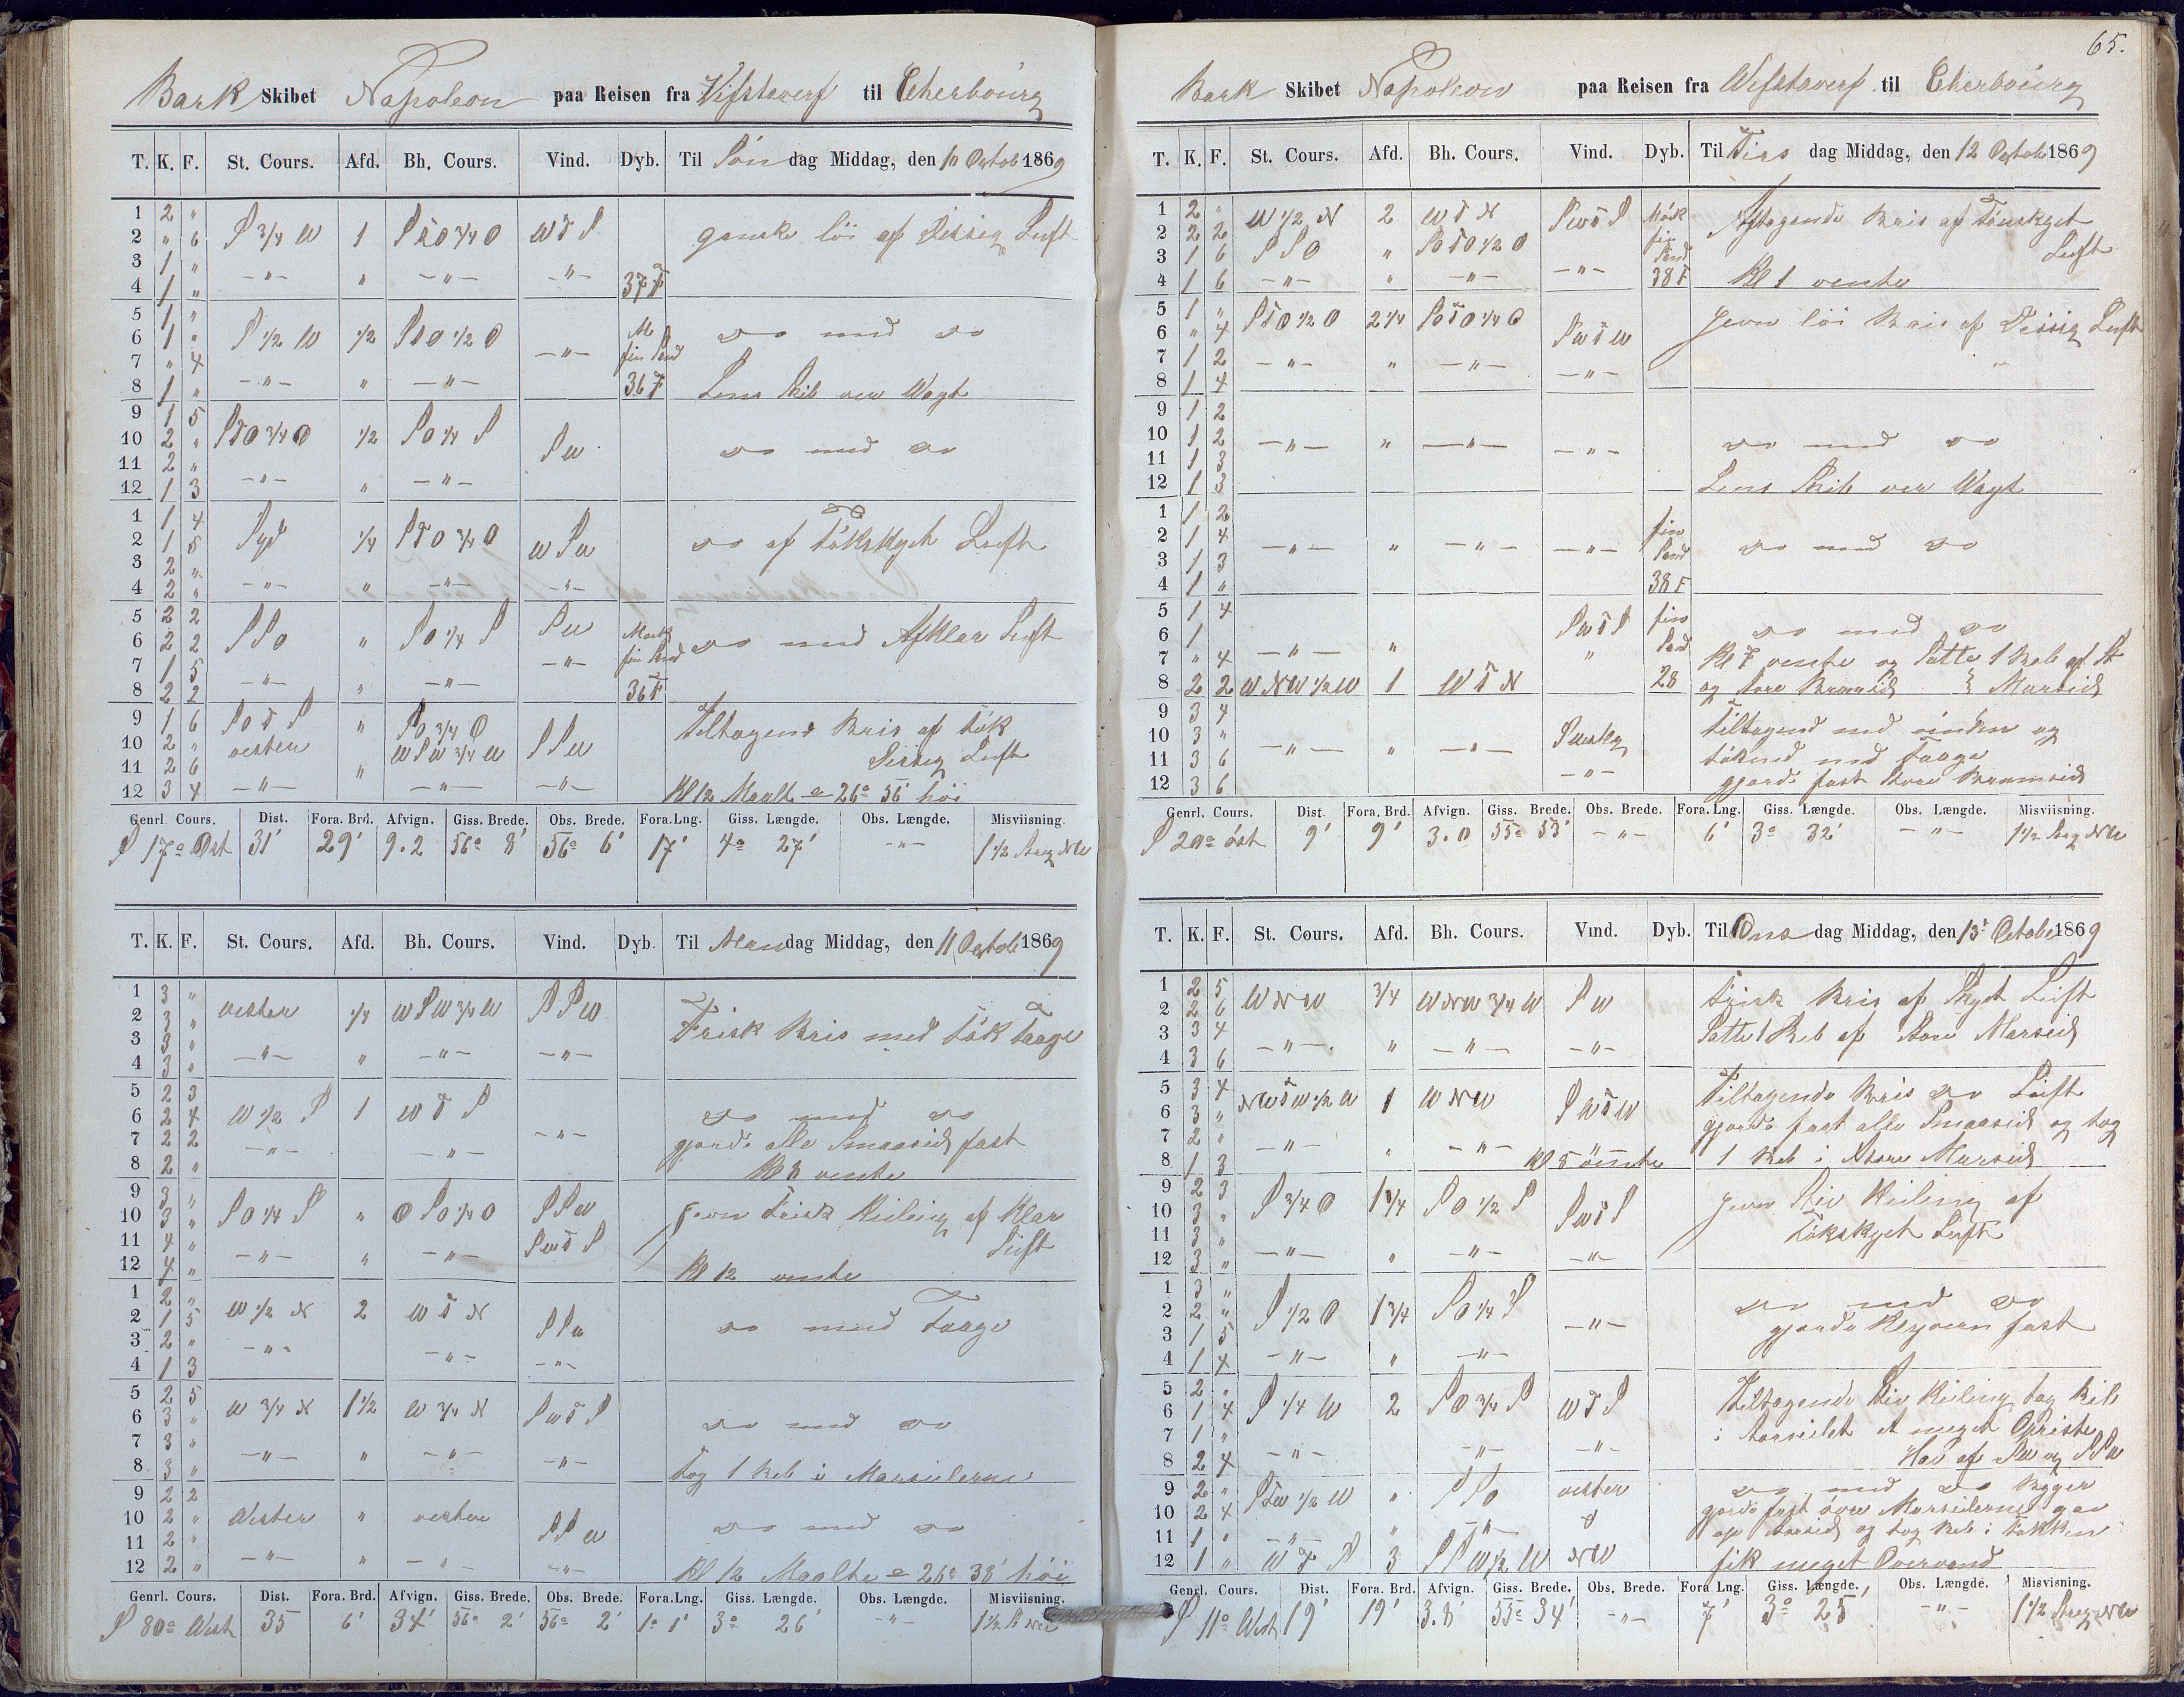 Bark Skibet Napoleon paa Reisen fra Vifstaverf til Cherbourg
T. K. F. St. Cours. Afd. Bh. Cours. Vind. Dyb. Til Søndag Middag, den 10 Octob 1869
1 2 "
2 " 6 S 3/4 W 1 StO 3/4 O WtS ganske löi af Dissig Luft
3 1 "
4 1 " -"- " -"- -"- 37 F
5 1 "
6 1 " S 1/2 W 1/2 StO 1/2 O -"- M fin Sand do med do
7 " 4
8 1 " -"- " -"- 36 F Lens Skib ver Wagt
9 1 5
10 2 " StO 3/4 O 1/2 SO 1/4 S SW do med do
11 2 "
12 1 3 -"- " -"-
1 1 4
2 1 5 Syd 1/4 StO 3/4 O WSW do af tökskyet Luft
3 2 "
4 2 " -"- " -"- -"-
5 2 2
6 2 2 SSO " SO 1/4 S SW Mørk fin Sand do med Afklar Luft
7 1 5 -"-
8 2 2 -"- " -"- 36 F
9 1 6 SOtS " SO 3/4 O Tiltagend Bris af tök
10 2 " vester WSW 3/4 W SSW
11 2 6 " Dissig Luft
12 3 4 -"- -"- -"- Kl 12 Maalte ☉ 26° 56' höi
Genrl. Cours. Dist. Fora. Brd. Afvign. Giss. Brede. Obs. Brede. Fora. Lng. Giss. Længde. Obs. Længde. Misviisning.
S 17° Ost 31' 29' 9.2 56° 8' 56° 6' 17' 4° 27' -"- 1 1/2 Streg NW
T. K. F. St. Cours. Afd. Bh. Cours. Vind. Dyb. Til Mandag Middag, den 11 Octob 1869
1 3 "
2 3 " vester 1/4 WSW 3/4 W SSW Frisk Bris med tök taage
3 3 "
4 3 " -"- " -"- -"-
5 2 3
6 2 4 W 1/2 S 1 WtS do med do
7 2 2 -"- gjorde alle Smaaseil fast
8 2 " -"- -"- Kl 8 vente
9 3 "
10 3 " SO 1/4 S " OSO 1/2 O SSW Jevn Frisk Kuling af Klar
11 4 " SWtS Luft
12 4 " -"- " -"- Kl 12 vente
1 2 "
2 1 5 W 1/2 N 2 WtN SSW do med Taage
3 2 "
4 1 3 -"- -"- -"-
5 2 5
6 3 " W 3/4 N 1 1/2 W 3/4 N SWtS do med do
7 3 "
8 3 " -"- " -"- -"- tog 1 Reb i Marseilerne
9 2 2
10 2 " Vester " vester SSW do med do
11 2 "
12 2 " -"- " -"- -"- Kl 12 Maalte ☉ 26° 38' höi
Genrl. Cours. Dist. Fora. Brd. Afvign. Giss. Brede. Obs. Brede. Fora. Lng. Giss. Længde. Obs. Længde. Misviisning.
S 80° West 35 6' 34' 56° 2' 56° 2' 1° 1' 3° 26' -"- 1 1/2 S NW
65.
Bark Skibet Napoleon paa Reisen fra Wifstaverf til Cherbourg
T. K. F. St. Cours. Afd. Bh. Cours. Vind. Dyb. Til Tirsdag Middag, den 12 Octob 1869
1 2 " W 1/2 N 2 WtN SWtS Mörk Aftagende Bris af Tönskyet
2 2 2 fin Luft
3 1 6 SSO " SOtO 1/2 O Sand
4 1 6 -"- " -"- -"- 38 F Kl 1 vente
5 1 " StO 1/2 O 2 1/4 SOtO 1/4 O Jevn löi Bris af Dissig Luft
6 " 4 SWtW
7 1 2 -"- " -"-
8 1 4 -"-
9 1 2
10 1 2 -"- " -"- -"- do med do
11 1 3
12 1 3 Lens Skib ver Wagt
1 1 2
2 1 4 -"- " -"- -"- fin Sand do med do
3 1 3
4 1 " 38 F
5 1 4 SWtS fin Sand do med do
6 1
7 " 4 -"- " " Kl 7 vente og Satte 1 Reb af St
8 2 2 WNW 1/2 W 1 WtN 28 og Store Bramseil Marseil
9 3 4 Tiltagend med vinden og
10 3 " -"- " -"- Svestlig töknet med Taage
11 3 6
12 3 6 -"- gjorde fast Store Bramseil
Genrl. Cours. Dist. Fora. Brd. Afvign. Giss. Brede. Obs. Brede. Fora. Lng. Giss. Længde. Obs. Længde. Misviisning.
S 20° öst 9' 9' 3.0 55° 53' -"- 6' 3° 32' -"- 1 1/2 Streg NW
T. K. F. St. Cours. Afd. Bh. Cours. Vind. Dyb. Til Onsdag Middag, den 13 October 1869
1 2 5 WNW 3/4 WNW 3/4 W SW Frisk Bris af Skyet Luft
2 2 6
3 3 4 Satte 1 Reb af Store Marseil
4 3 6 -"- " -"- -"-
5 3 4 NWtW 1/2 W 1 WNW SWtW Tiltagende Bris do Luft
6 3 " gjorde fast alle Smaaseil og tog
7 2 " -"- -"-
8 1 3 Kl 5 vente 1 Reb i Store Marseil
9 2 3 S 3/4 O 1 3/4 SO 1/2 S SWtS Jevn Stiv Kuling af
10 3 "
11 3 " Tökskyet Luft
12 3 " -"- " -"- -"-
1 3 "
2 2 " S 1/2 O 1 3/4 SO 1/4 S -"- do med do
3 1 5 gjorde Klyveren fast
4 1 4 -"- " -"-
5 2 " Tiltagende Stiv Kuling tog Reb
6 1 4 S 1/4 W 2 SO 3/4 S WtS
7 1 " i Storseilet et meget Opriste
8 2 4 -"- -"- -"- Hav af SW og SSW
9 2 " StW 1/2 W " SSO vester do med do Byger
10 2 4 gjorde fast övre Marseilerne
11 1 " -"- " -"-
12 1 " WtS 3 SSW 1/2 W NW fik meget Overvand
Genrl. Cours. Dist. Fora. Brd. Afvign. Giss. Brede. Obs. Brede. Fora Lng. Giss. Længde. Obs. Længde. Misvisning.
S 11° West 19' 19' 3.8' 55° 34' -"- 7' 3° 25' -"- 1 1/2 Streg NW